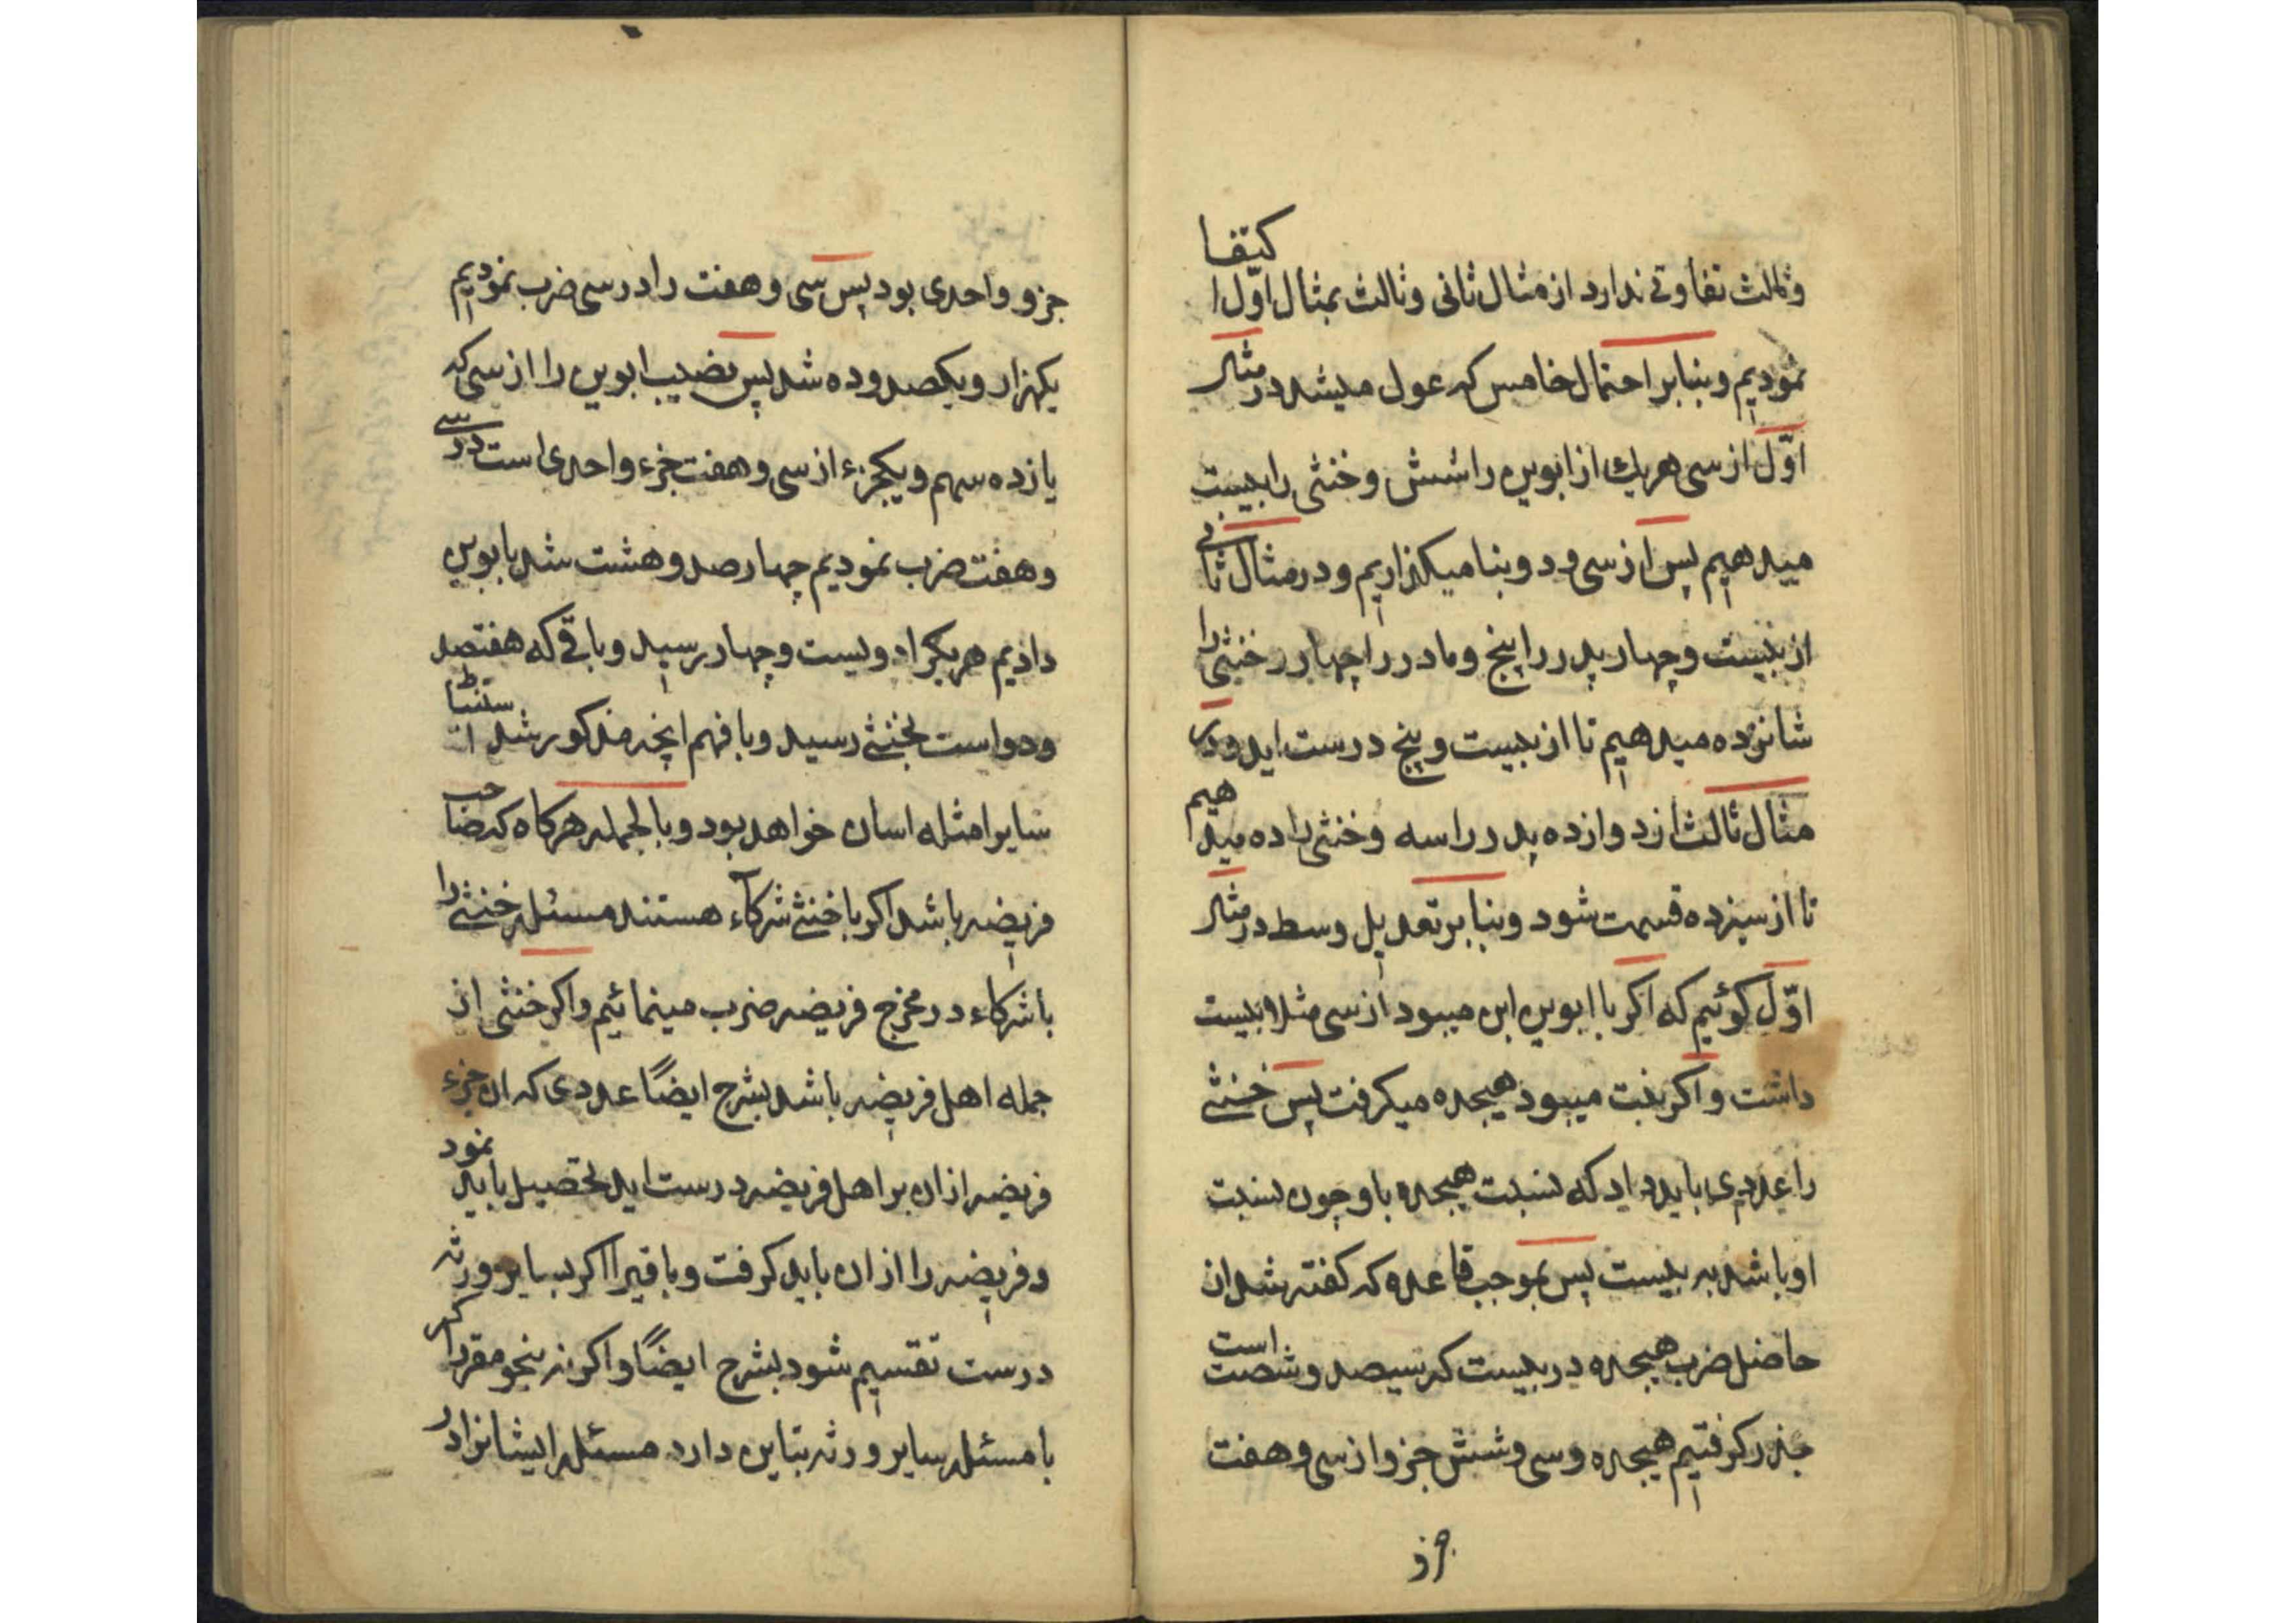 وثالث تفاوتی ندارد از مثال ثانی وثالث بمثال اوّل اکتفا
نمودیم وبنابر احتمال خامس که عول میشد در مثال
اوّل از سی هریك از ابوین را شش وخنثی را بیست
میدهیم پس از سی ودو بنا میکزاریم ودر مثال ثانی
از بیست وچهار پدر را پنج ومادر را چهار ر خنثی را
شانزده میدهیم تا از بیست وپنج درست اید ودر
مثال ثالث از دوازده پدر را سه وخنثی را ده میدهیم
تا از سیزده قسمت شود وبنابر تعدیل وسط در مثال
اوّل کوئیم که اکر با ابوین ابن میبود از سی مثلا بیست
داشت واکر بنت میبود هیجده میکرفت پس خنثی
را عددی باید داد که نسبت هیجده باو چون نسبت
او باشد به بیست پس بموجب قاعده که کفته شد از
حاصل ضرب هیجده در بیست که سیصد وشصت است
جذر کرفتیم هیجده وسی وشش جزو از سی وهفت
جزو واحدی بود پس سی وهفت را در سی ضرب نمودیم
یکهزار ویکصد وده شد پس نصیب ابوین را از سی که
یازده سهم ویکجزء از سی وهفت جزء واحدی است در سی
وهفت ضرب نمودیم چهارصد وهشت شد بابوین
دادیم هریکرا دویست وچهار رسید وباقی که هفتصد
ودو است بخنثی رسید وبا فهم انچه مذکور شد استنباط
سایر امثله اسان خواهد بود وبالجمله هرکاه که صاحب
فریضه باشد اکر با خنثی شرکآء هستند مسئله خنثی را
با شرکاء در مخرج فریضه ضرب مینمائیم واکر خنثی از
جمله اهل فریضه باشد بشرح ایضًا عددی که ان جزء
فریضه از ان بر اهل فریضه درست اید تحصیل باید نمود
وفریضه را از ان باید کرفت وباقیرا اکر بسایر ورثه
درست تقسیم شود بشرح ایضًا واکر نه بنحو مقرر اکر
با مسئله سایر ورثه تباین دارد مسئله ایشانرا در